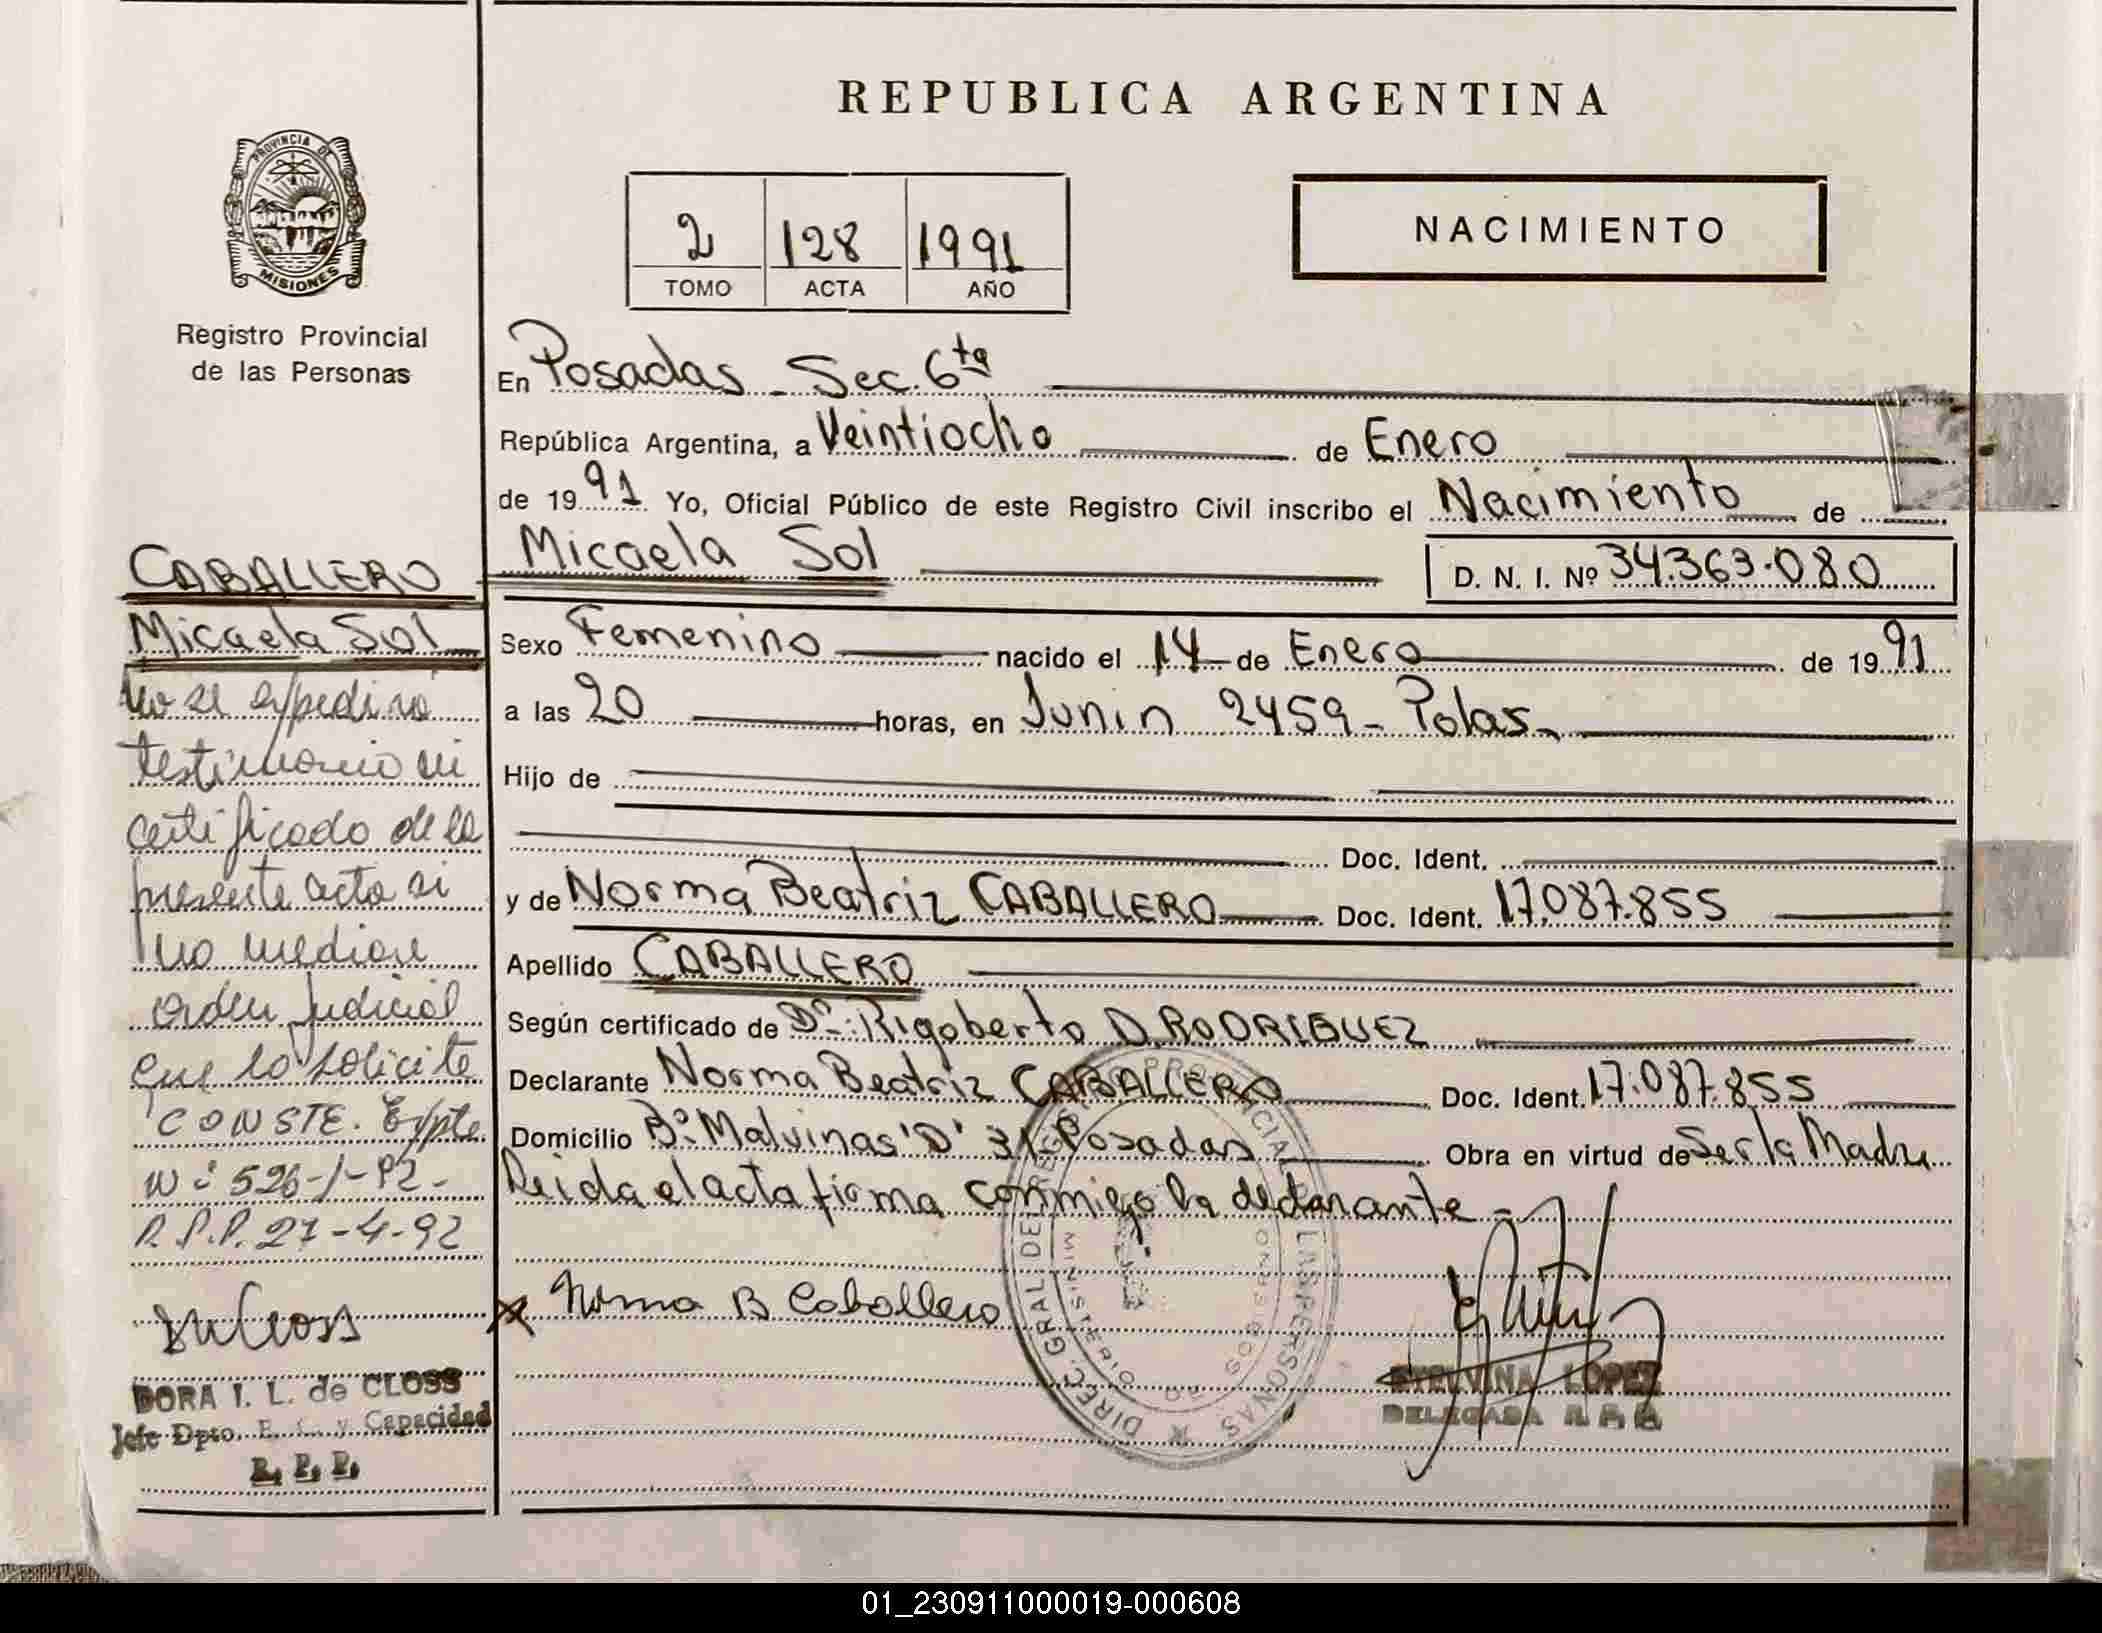 REPUBLICA ARGENTINA
PROVINCIA DE
MISIONES
Registro Provincial
de las Personas
2 128 1991
TOMO ACTA AÑO
NACIMIENTO
En Posadas - Sec. 6ta
República Argentina, a Veintiocho de Enero
de 1991 Yo, Oficial Público de este Registro Civil inscribo el Nacimiento de
Micaela Sol
D. N. I. Nº 34.363.080
Sexo Femenino nacido el 14 de Enero de 1991
a las 20 horas, en Junin 2459 - Pdas.
Hijo de
Doc. Ident.
y de Norma Beatriz CABALLERO Doc. Ident. 17.087.855
Apellido CABALLERO
Según certificado de Dr. Rigoberto D. RODRIGUEZ
Declarante Norma Beatriz CABALLERO Doc. Ident. 17.087.855
Domicilio Bº Malvinas 'D' 31 Posadas Obra en virtud de Ser la Madre
Leida el acta firma conmigo la declarante -
Norma B Caballero
DIREC. GRAL DE REGISTRO PROVINCIAL DE LAS PERSONAS
MINISTERIO DE GOBIERNO
ETELVINA LOPEZ
DELEGADA R. P. P.
CABALLERO
Micaela Sol
No se expedirá
testimonio ni
certificado de la
presente acta si
no mediare
orden judicial
que lo solicite
CONSTE. Expte
Nº 526-1-92-
R.P.P. 27-4-92
DORA I. L. de CLOSS
Jefe Dpto. E. C. y Capacidad
R. P. P.
01_230911000019-000608